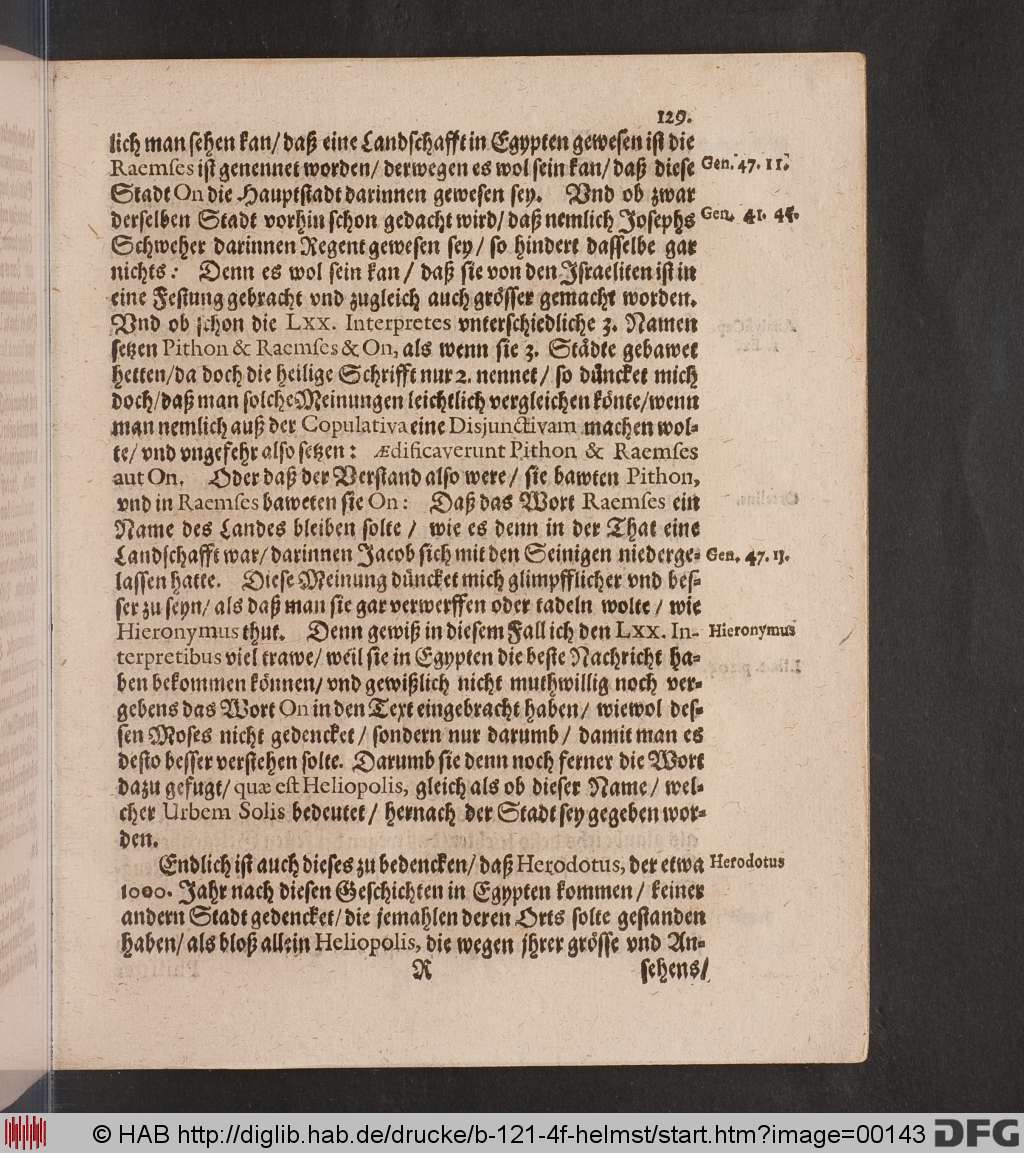 129.
lich man sehen kan/ daß eine Landschafft in Egypten gewesen ist die
Raemses ist genennet worden/ derwegen es wol sein kan/ daß diese Gen. 47. 11.
Stadt On die Hauptstadt darinnen gewesen sey. Vnd ob zwar
derselben Stadt vorhin schon gedacht wird/ daß nemlich Josephs Gen. 41. 45.
Schweher darinnen Regent gewesen sey/ so hindert dasselbe gar
nichts: Denn es wol sein kan/ daß sie von den Israeliten ist in
eine Festung gebracht vnd zugleich auch grösser gemacht worden.
Vnd ob schon die LXX. Interpretes vnterschiedliche 3. Namen
setzen Pithon & Raemses & On, als wenn sie 3. Städte gebawet
hetten/ da doch die heilige Schrifft nur 2. nennet/ so düncket mich
doch/ daß man solche Meinungen leichtlich vergleichen könte/ wenn
man nemlich auß der Copulativa eine Disjunctivam machen wol-
te/ vnd vngefehr also setzen: Ædificaverunt Pithon & Raemses
aut On. Oder daß der Verstand also were/ sie bawten Pithon,
vnd in Raemses baweten sie On: Daß das Wort Raemses ein
Name des Landes bleiben solte/ wie es denn in der That eine
Landschafft war/ darinnen Jacob sich mit den Seinigen niederge- Gen. 47. 11.
lassen hatte. Diese Meinung düncket mich glimpfflicher vnd bes-
ser zu seyn/ als daß man sie gar verwerffen oder tadeln wolte/ wie
Hieronymus thut. Denn gewiß in diesem Fall ich den LXX. In- Hieronymus
terpretibus viel trawe/ weil sie in Egypten die beste Nachricht ha-
ben bekommen können/ vnd gewißlich nicht muthwillig noch ver-
gebens das Wort On in den Text eingebracht haben/ wiewol des-
sen Moses nicht gedencket/ sondern nur darumb/ damit man es
desto besser verstehen solte. Darumb sie denn noch ferner die Wort
dazu gefugt/ quæ est Heliopolis, gleich als ob dieser Name/ wel-
cher Urbem Solis bedeutet/ hernach der Stadt sey gegeben wor-
den.
Endlich ist auch dieses zu bedencken/ daß Herodotus, der etwa Herodotus
1000. Jahr nach diesen Geschichten in Egypten kommen/ keiner
andern Stadt gedencket/ die jemahlen deren Orts solte gestanden
haben/ als bloß allein Heliopolis, die wegen jhrer grösse vnd An-
R sehens/
© HAB http://diglib.hab.de/drucke/b-121-4f-helmst/start.htm?image=00143 DFG